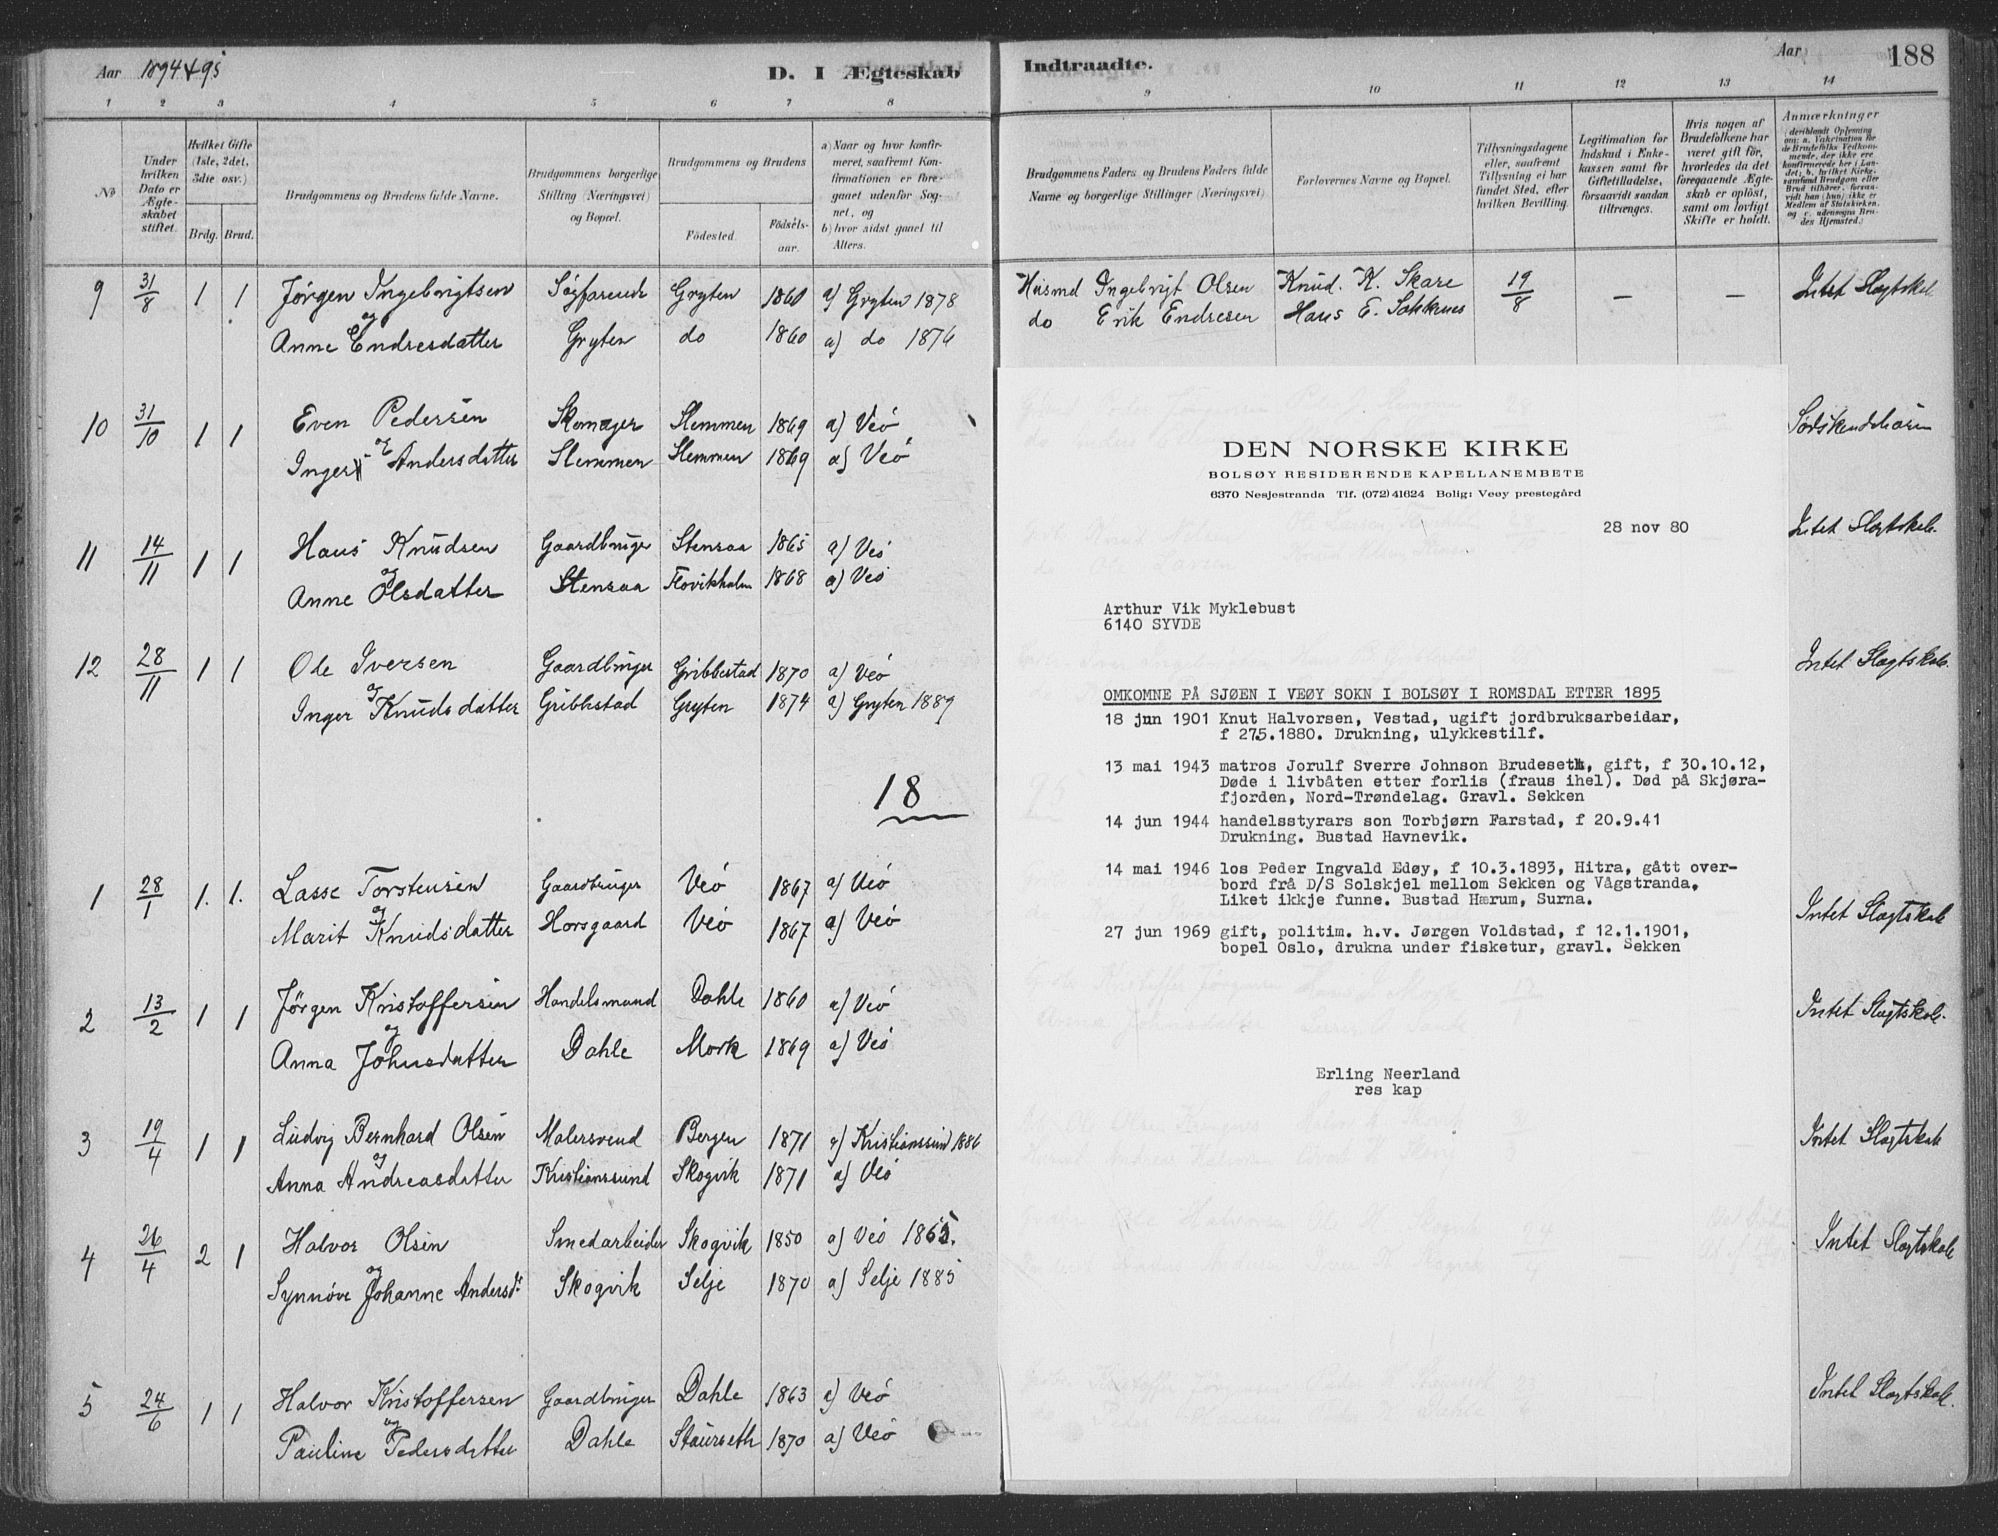 Aar 1894 & 95
D. I Ægteskab
Indtraadte.
Aar
188
1 2 3 4 5 6 7 8
9 10 11 12 13 14
No
Under hvilken Dato er Ægteskabet stiftet.
Hvilket Gifte (1ste, 2det, 3die osv.)
Brdg. Brud.
Brudgommens og Brudens fulde Navne.
Brudgommens borgerlige Stilling (Næringsvei) og Bopæl.
Brudgommens og Brudens
Fødested.
Fødselsaar.
a) Naar og hvor konfirmeret, saafremt Konfirmationen er foregaaet udenfor Sognet, og
b) hvor sidst gaaet til Alters.
Brudgommens Faders og Brudens Faders fulde Navne og borgerlige Stillinger (Næringsvei)
Forlovernes Navne og Bopæl.
Tillysningsdagene eller, saafremt Tillysning ei har fundet Sted, efter hvilken Bevilling.
Legitimation for Indskud i Enkekassen samt for Giftetilladelse, forsaavidt saadan tiltrænges.
Hvis nogen af Brudefolkene har været gift før, hvorledes da det foregaaende Ægteskab er opløst, samt om lovligt Skifte er holdt.
Anmærkninger
9 31/8 1 1 Jørgen Ingebrigtsen Søfarende Gryten 1860 a) Gryten 1878 Husmd Ingebrigt Olsen Knud. K. Skare 19/8 — — Intet Slagtskab
og
Anne Endresdatter Gryten do 1860 a) do 1876 do Erik Endresen Hans E. Sokknes
10 31/10 1 1 Even Pedersen Skomager Slemmen 1869 a) Veö Södskendebørn
og
Inger E Andersdatter Slemmen Slemmen 1869 a) Veö
11 14/11 1 1 Hans Knudsen Gaardbruger Stensaa 1865 a) Veö Intet Slagtskab.
og
Anne Olsdatter Stensaa Flovikholm 1868 a) Veö
12 28/11 1 1 Ole Iversen Gaardbruger Gribbestad 1870 a) Veö Intet Slagtskab.
og
Inger Knudsdatter Gribbestad Gryten 1874 a) Gryten 1889
18
1 28/1 1. 1. Lasse Torstensen Gaardbruger Veö 1867 a) Veö Intet Slagtskab
og
Marit Knudsdatter Horsgaard Veö 1867 a) Veö
2 13/2 1 1 Jørgen Kristoffersen Handelsmand Dahle 1860 a) Veö Intet Slagtskab.
og
Anna Johnsdatter Dahle Mork 1869 a) Veö
3 19/4 1 1 Ludvig Bernhard Olsen Malersvend Bergen 1871 a) Kristianssund 1886 Intet Slagtskab
og
Anna Andreasdatter Kristianssund Skogvik 1871 a) Veö
4 26/4 2 1 Halvor Olsen Smedarbeider Skogvik 1850 a) Veö 1865. Intet Slagtskab
og
Synnöve Johanne Andersdr Skogvik Selje 1870 a) Selje 1885
5 24/6 1 1 Halvor Kristoffersen Gaardbruger Dahle 1863 a) Veö Intet Slagtskab.
og
Pauline Pedersdatter Dahle Staurseth 1870 a) Veö
DEN NORSKE KIRKE
BOLSØY RESIDERENDE KAPELLANEMBETE
6370 Nesjestranda Tlf. (072) 41624 Bolig: Veøy prestegård
28 nov 80
Arthur Vik Myklebust
6140 SYVDE
OMKOMNE PÅ SJØEN I VEØY SOKN I BOLSØY I ROMSDAL ETTER 1895
18 jun 1901 Knut Halvorsen, Vestad, ugift jordbruksarbeidar,
f 275.1880. Drukning, ulykkestilf.
13 mai 1943 matros Jorulf Sverre Johnson Brudeseth, gift, f 30.10.12,
Døde i livbåten etter forlis (fraus ihel). Død på Skjøra-
fjorden, Nord-Trøndelag. Gravl. Sekken
14 jun 1944 handelsstyrars son Torbjørn Farstad, f 20.9.41
Drukning. Bustad Havnevik.
14 mai 1946 los Peder Ingvald Edøy, f 10.3.1893, Hitra, gått over-
bord frå D/S Solskjel mellom Sekken og Vågstranda.
Liket ikkje funne. Bustad Hærum, Surna.
27 jun 1969 gift, politim. h.v. Jørgen Voldstad, f 12.1.1901,
bopel Oslo, drukna under fisketur, gravl. Sekken
Erling Neerland
res kap